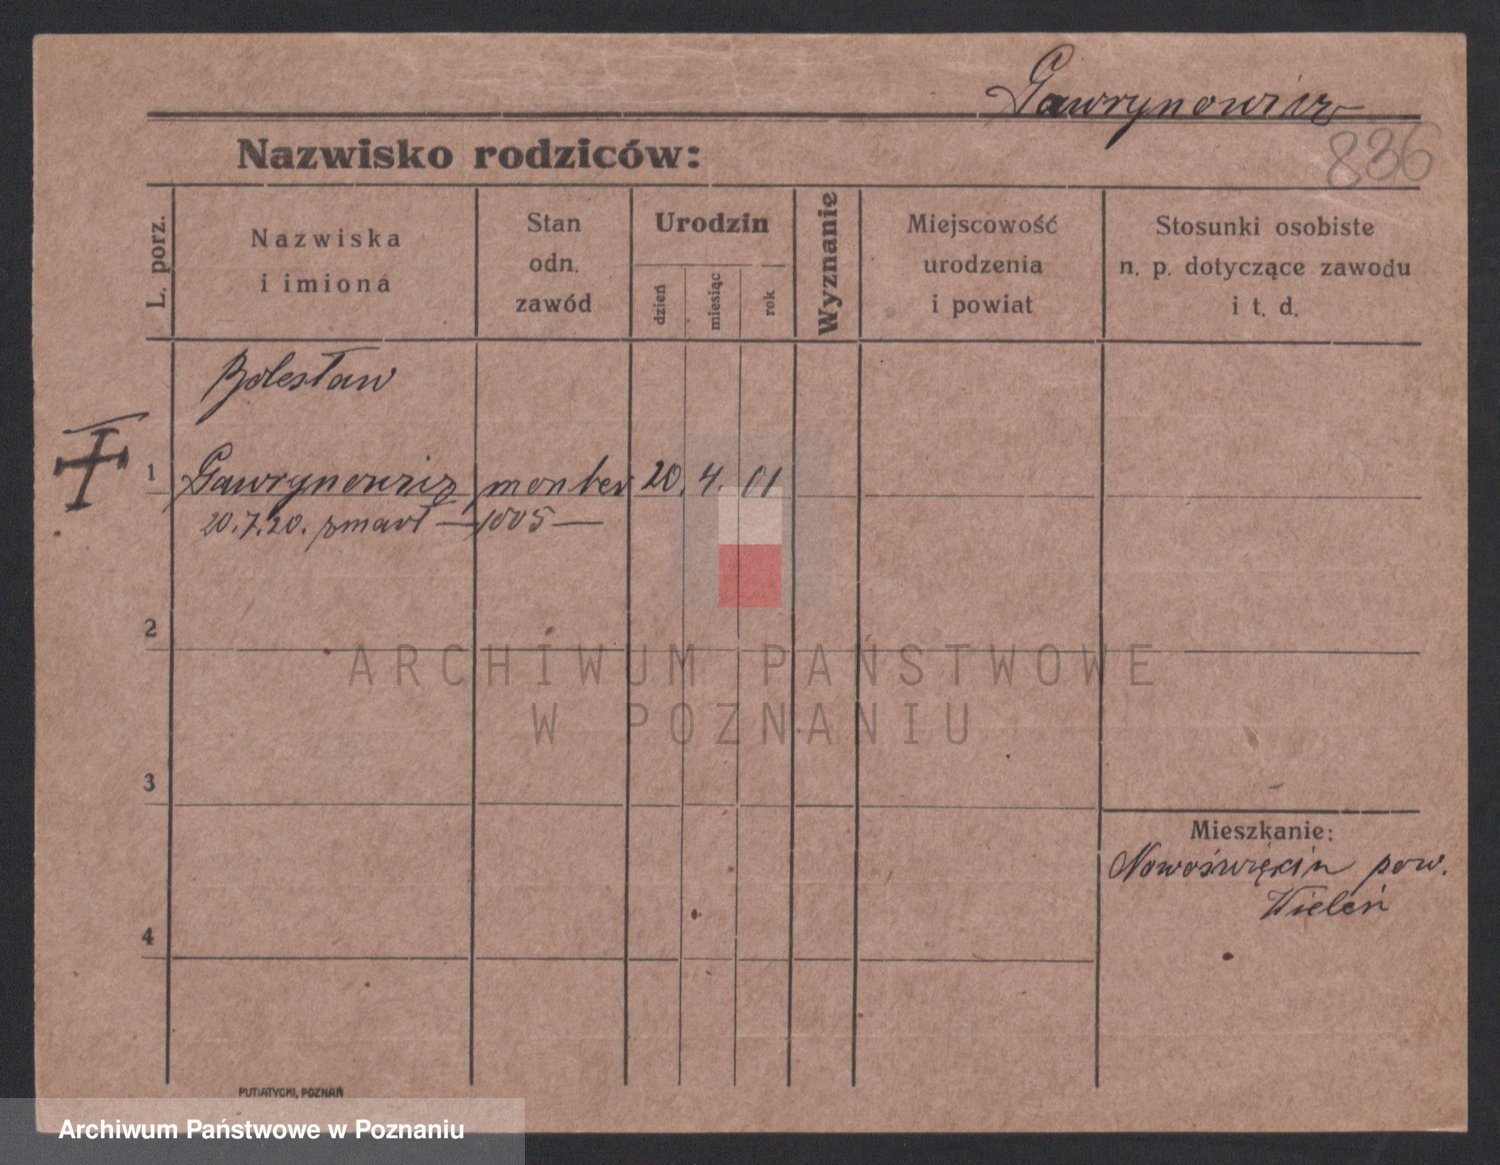 Gawrynowicz
836
Nazwisko rodziców:
L. porz.
Nazwiska
i imiona
Stan
odn.
zawód
Urodzin
dzień
miesiąc
rok
Wyznanie
Miejscowość
urodzenia
i powiat
Stosunki osobiste
n. p. dotyczące zawodu
i t. d.
Bolesław
1 Gawrynowicz monter 20. 4. 01
20.7.20. zmarł — 1005 —
2
3
4
Mieszkanie:
pow.
Wieleń
PUTIATYCKI, POZNAŃ
ARCHIWUM PAŃSTWOWE
W POZNANIU
Archiwum Państwowe w Poznaniu